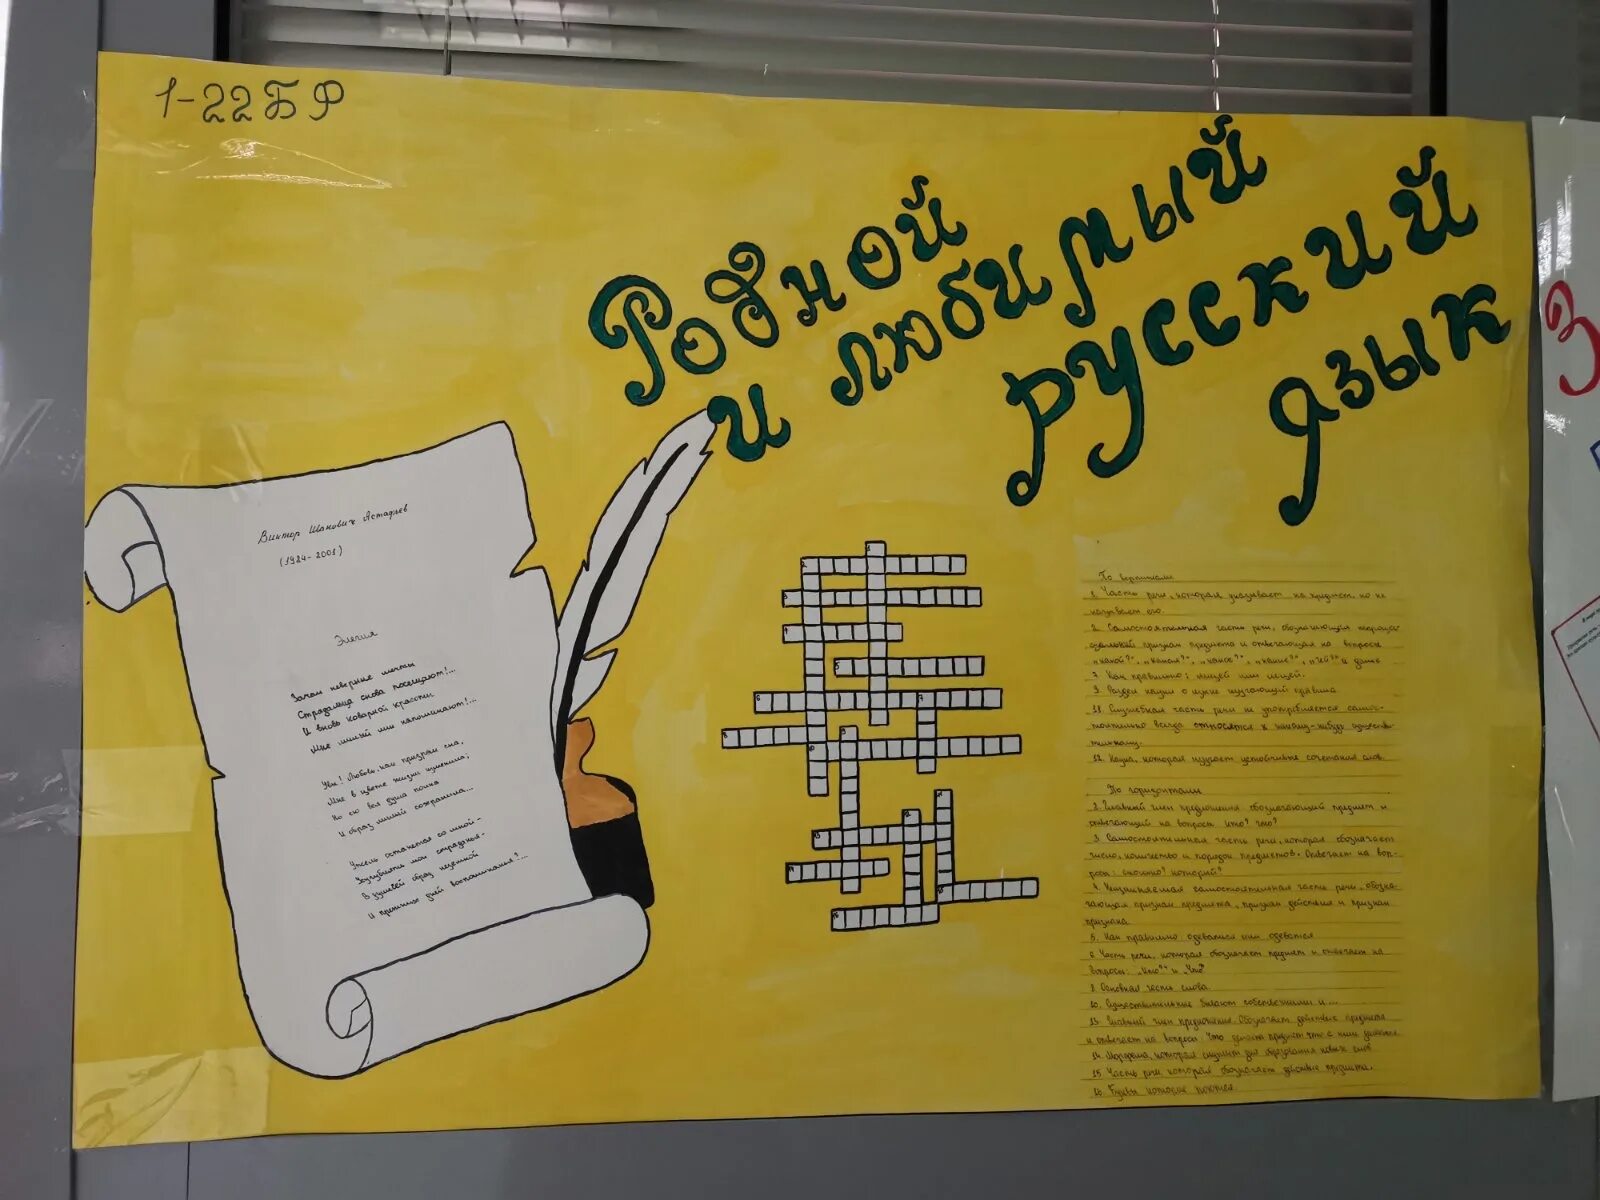 1-22БР
Родной
и любимый
русский
язык
Виктор Иванович Астафьев
(1924-2001)
Элегия
Зачем неверные мечты
Страдальца снова посещают!...
И вновь коварной красоты
Мне милый лик напоминают!...
Увы! Любовь, как призрак сна,
Мне в цвете жизни изменила;
Но ею вся душа полна
И образ милый сохранила...
Ужель останется со мной -
Усугубить мои страданья -
В душевой образ неземной
И прежних дней воспоминания?...
По вертикали
1. Часть речи, которая указывает на предмет, но не
называет его.
2. Самостоятельная часть речи, обозначающая
признак предмета и отвечающая на вопросы
"какой?", "какая?", "какое?", "какие?", "чей?" и даже
7. Как правильно: ищей или ищей.
9. Раздел науки о языке изучающий правила
11. Служебная часть речи не употребляется самос-
тоятельно всегда относятся к какому-нибудь существи-
тельному.
12. Наука, которая изучает устойчивые сочетания слов.
По горизонтали
2. Главный член предложения обозначающий предмет и
отвечающий на вопросы кто? что?
3. Самостоятельная часть речи, которая обозначает
число, количество и порядок предметов. Отвечает на воп-
росы: сколько? который?
4. Неизменяемая самостоятельная часть речи, обозна-
чающая признак предмета, признак действия и признак
признака.
5. Как правильно одеваться или одеватся
6. Часть речи, которая обозначает предмет и отвечает на
вопросы: "Кто?" и "Что?"
8. Основная часть слова.
10. Существительные бывают собственными и...
13. Главный член предложения. Обозначает действие предмета
и отвечает на вопросы: Что делает предмет? что с ним
14. Морфема, которая служит для образования новых слов
15. Часть речи которая обозначает действие предмета.
16. Буквы которые
З